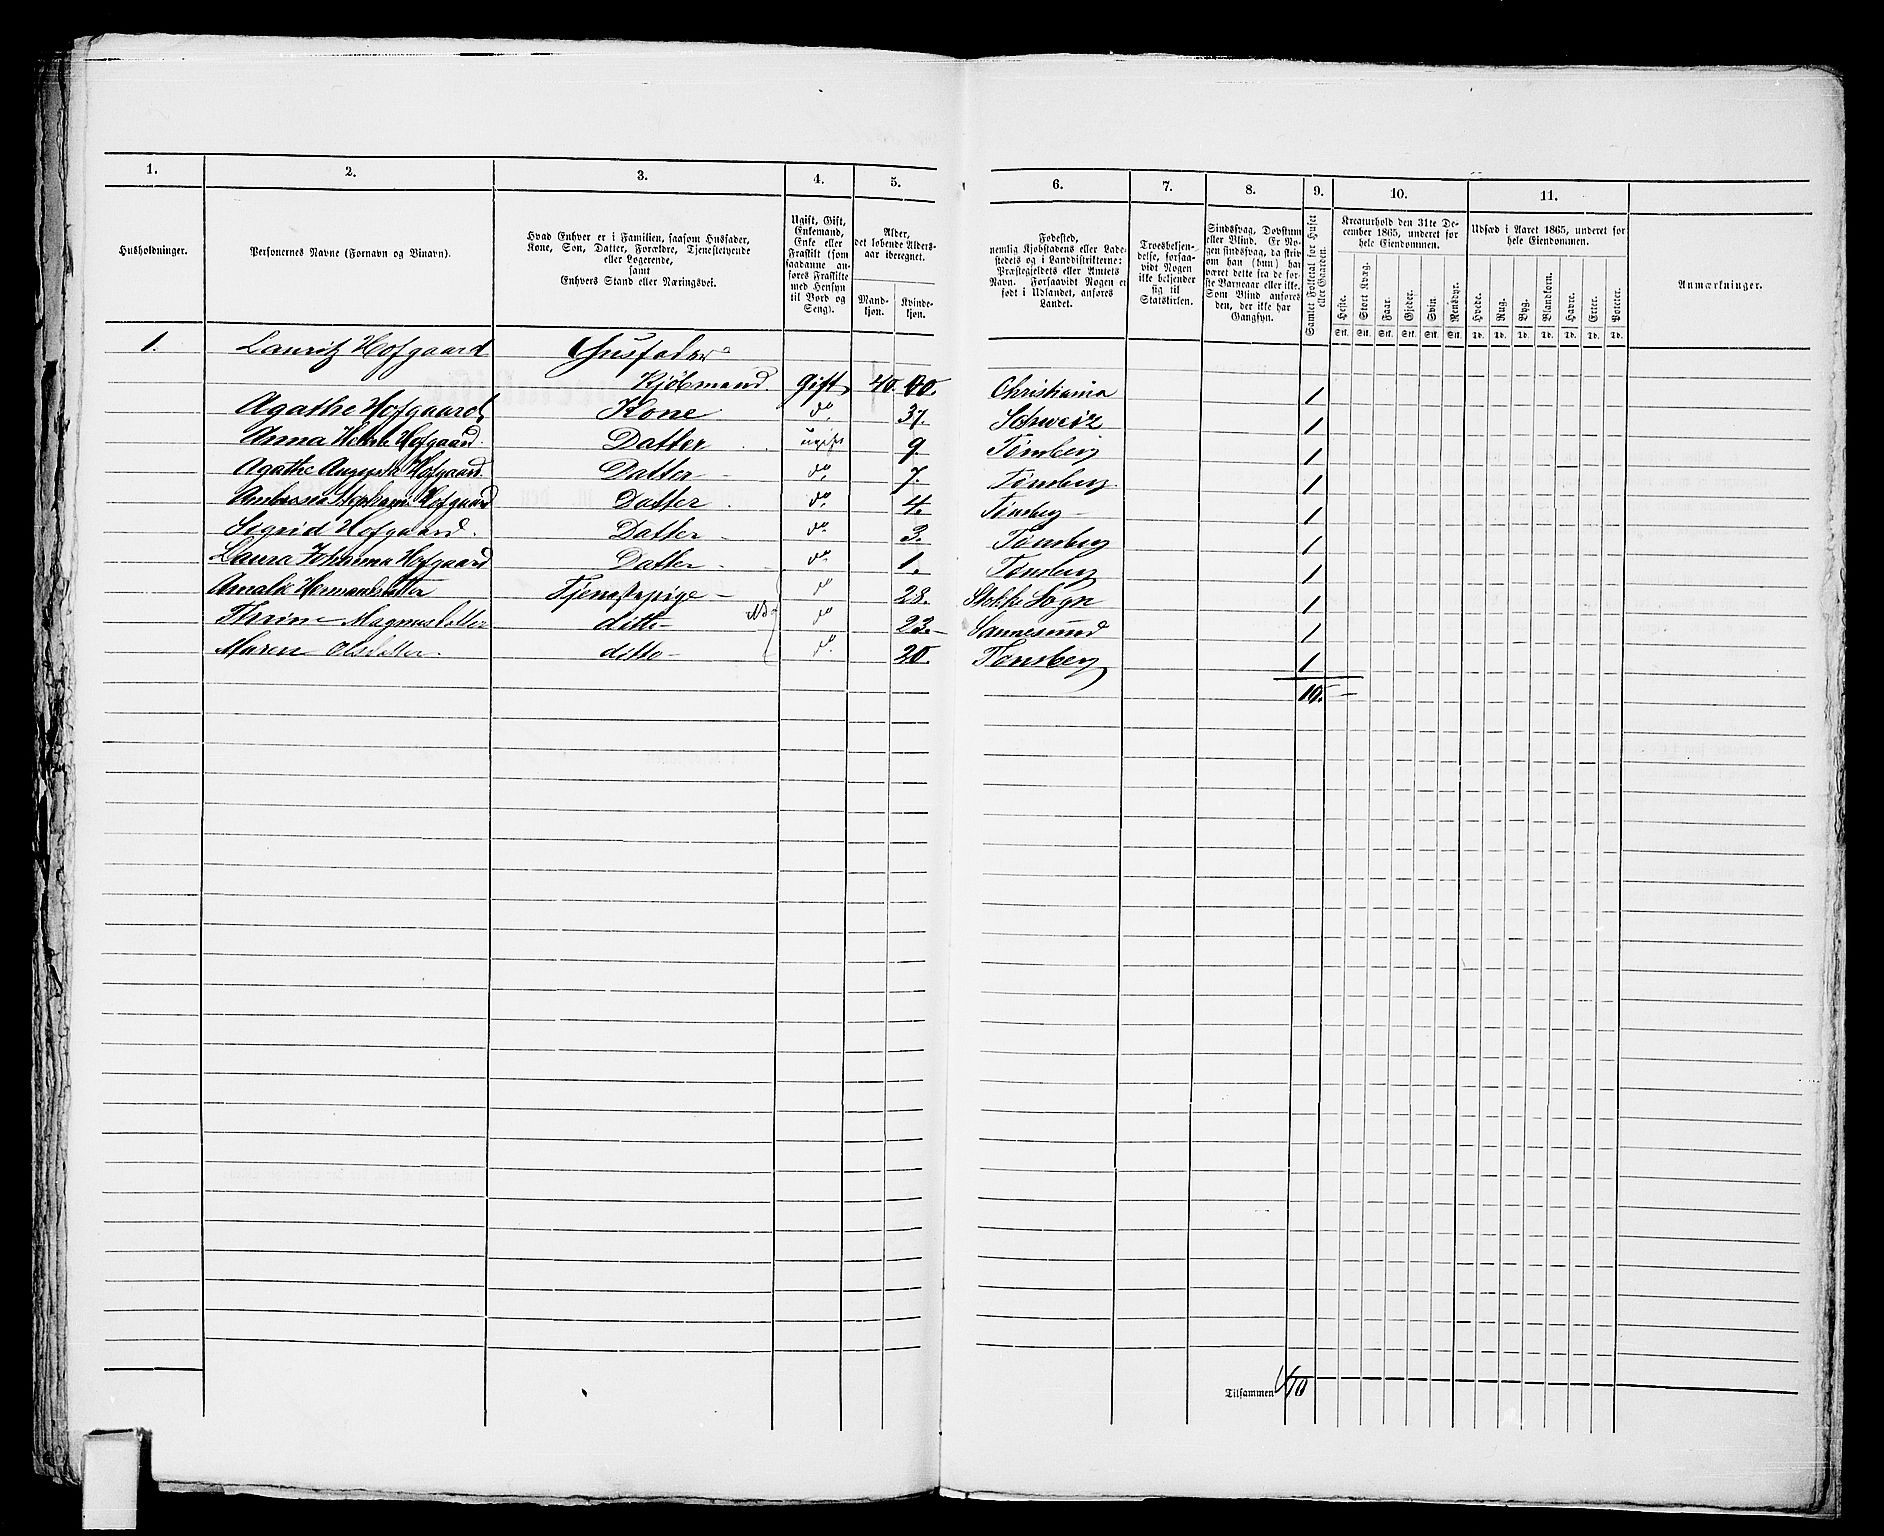 1. 2. 3. 4. 5. 6. 7. 8. 9. 10. 11.
Husholdninger.
Personernes Navne (Fornavn og Binavn).
Hvad Enhver er i Familien, saasom Husfader,
Kone, Søn, Datter, Forældre, Tjenestetyende
eller Logerende,
samt
Enhvers Stand eller Næringsvei.
Ugift, Gift,
Enkemand,
Enke eller
Fraskilt (som
saadanne an-
føres Fraskilte
med Hensyn
til Bord og
Seng).
Alder,
det løbende Alders-
aar iberegnet.
Mand-
kjøn.
Kvinde-
kjøn.
Fødested,
nemlig Kjøbstadens eller Lade-
stedets og i Landdistrikterne:
Præstegjeldets eller Amtets
Navn. Forsaavidt Nogen er
født i Udlandet, anføres
Landet.
Troesbekjen-
delse, forsaa-
vidt Nogen
ikke bekjender
sig til
Statskirken.
Sindssvag, Døvstum
eller Blind. Er No-
gen sindssvag, da skriv
om han (hun) har
været dette fra de før-
ste Barneaar eller ikke.
Som Blind anføres
den, der ikke har
Gangsyn.
Samlet Folketal for Huset
eller Gaarden.
Kreaturhold den 31te De-
cember 1865, underet for
hele Eiendommen.
Heste. Stort Kvæg. Faar. Gjeder. Svin. Rensdyr.
Stk. Stk. Stk. Stk. Stk. Stk.
Udsæd i Aaret 1865, underet for
hele Eiendommen.
Hvede. Rug. Byg. Blandkorn. Havre. Erter. Poteter.
Td. Td. Td. Td. Td. Td. Td.
Anmærkninger.
1. Lauritz Hofgaard Husfader
Kjøbmand Gift 40. Christiania 1
Agathe Hofgaard Kone do 37. Schweiz 1
Anna Hofgaard. Datter ugift 9. Tønsberg 1
Agathe Augusta Hofgaard. Datter do 7. Tønsberg 1
Hofgaard Datter do 4. Tønsberg 1
Sigrid Hofgaard. Datter do 3. Tønsberg 1
Laura Johanna Hofgaard Datter do 1. Tønsberg 1
Amalie Hermandsdatter Tjenestepige do 28. Stokke Sogn 1
Thrine Magnusdatter ditto do 23. Sannesund 1
Maren Olsdatter. ditto do 20. Tønsberg 1
10.
Tilsammen 10